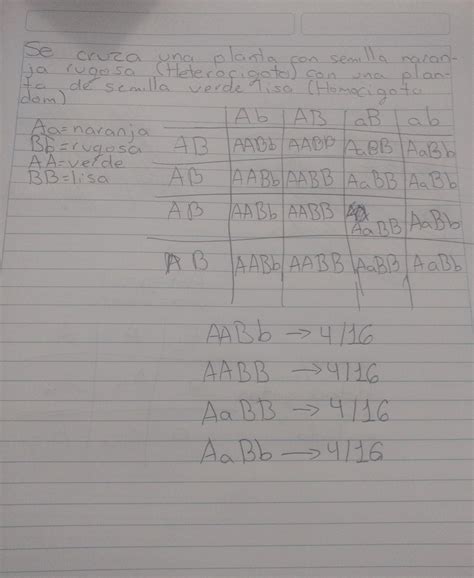 Se cruza una planta con semilla naran-
ja rugosa (Heterocigoto) con una plan-
ta de semilla verde lisa (Homocigota
dom)
Ab AB aB ab
Aa=naranja
Bb=rugosa
AA=verde
BB=lisa
AB AABb AABB AaBB AaBb
AB AABb AABB AaBB AaBb
AB AABb AABB AaBB AaBb
AB AABb AABB AaBB AaBb
AABb → 4/16
AABB → 4/16
AaBB → 4/16
AaBb → 4/16